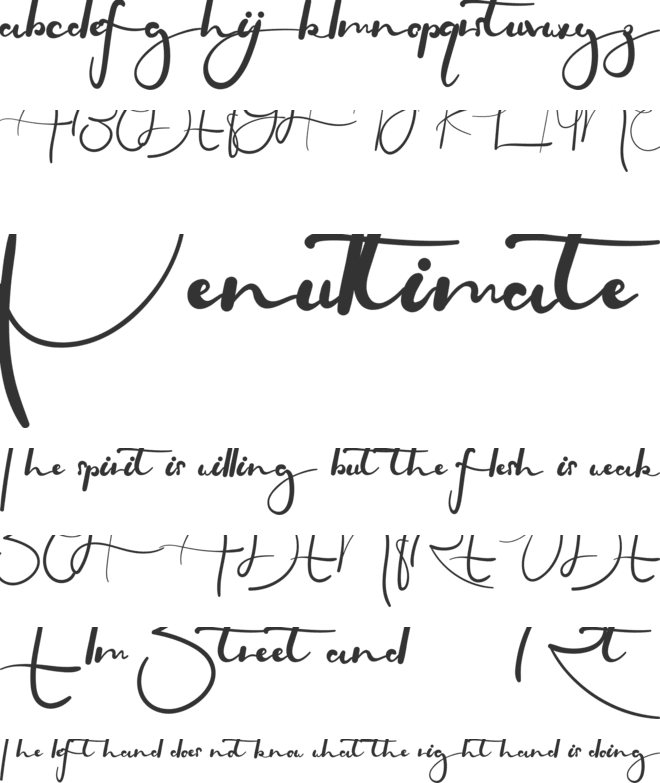 abcdefghijklmnopqrstuvwxyz
Penultimate
The spirit is willing but the flesh is weak
SCHADENFREUDE
Elm Street and
The left hand does not know what the right hand is doing